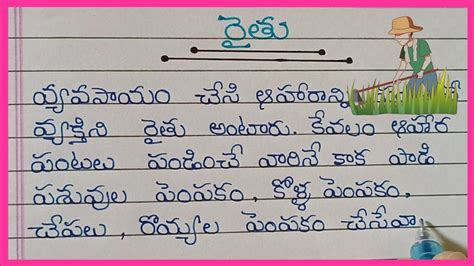 రైతు
వ్యవసాయం చేసి ఆహారాన్ని
వ్యక్తిని రైతు అంటారు. కేవలం ఆహార
పంటలు పండించే వారినే కాక పాడి
పశువుల పెంపకం, కోళ్ళ పెంపకం,
చేపలు, రొయ్యల పెంపకం చేసేవా